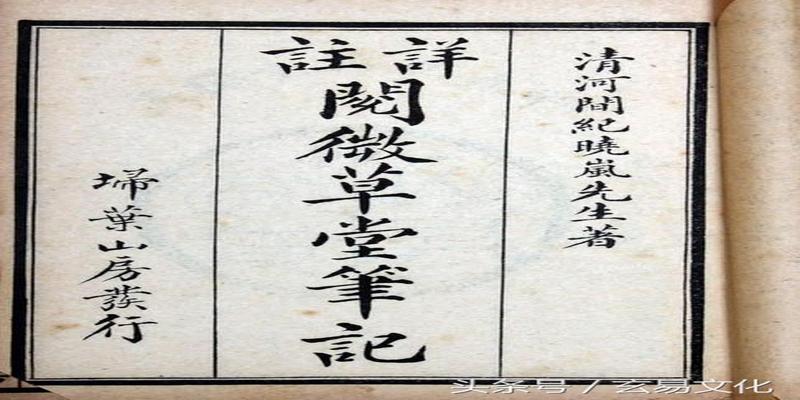 清河間紀曉嵐先生著
詳註
閱微草堂筆記
埽葉山房發行
头条号 / 玄易文化